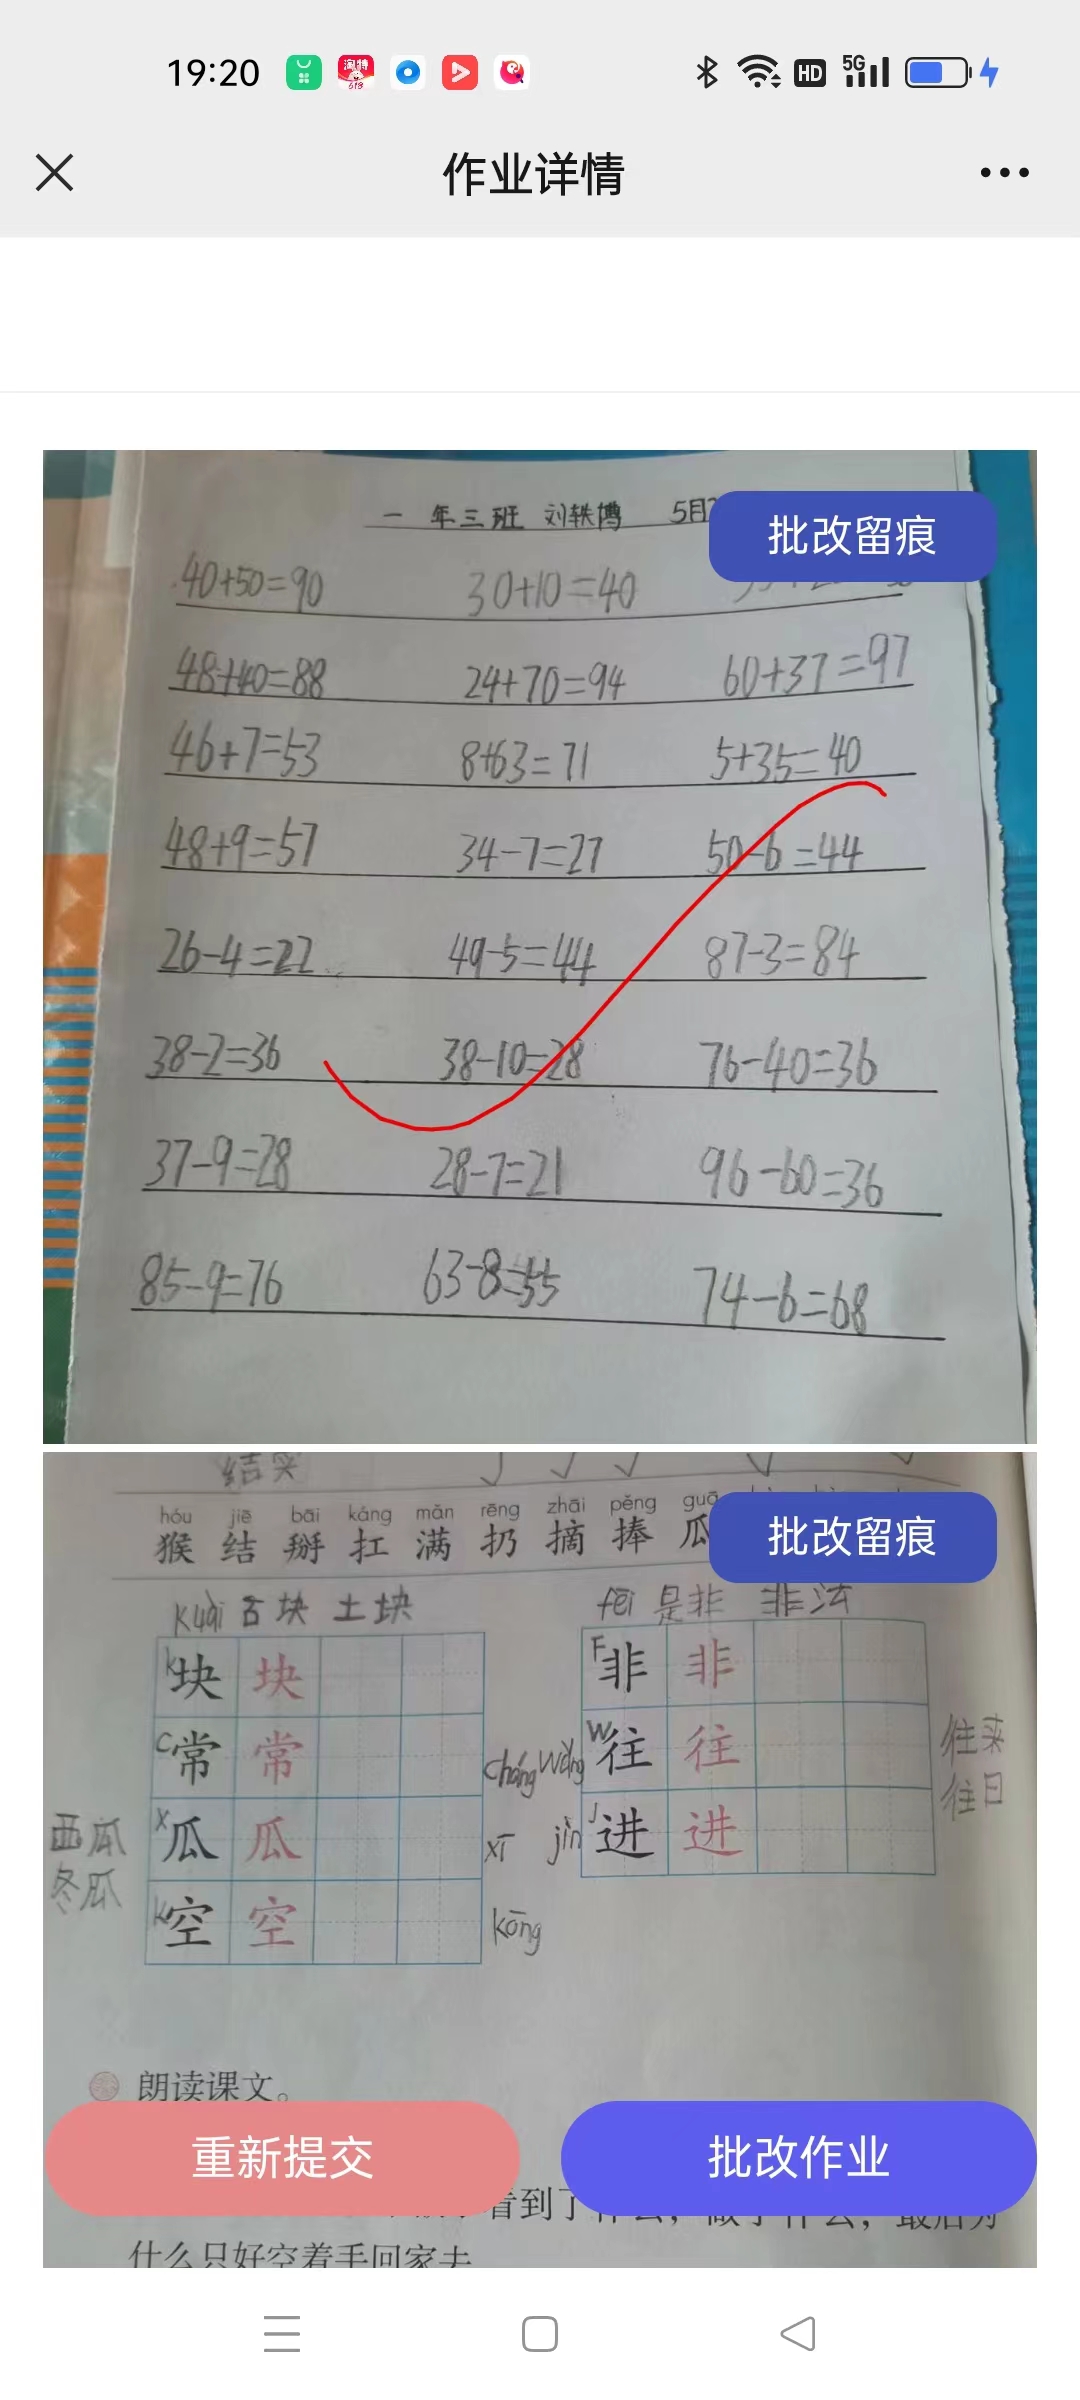 19:20
淘特
618
HD
5G
作业详情
一 年三班 刘轶博 5月
批改留痕
40+50=90 30+10=40
48+40=88 24+70=94 60+37=97
46+7=53 8+63=71 5+35=40
48+9=57 34-7=27 50-6=44
26-4=22 49-5=44 87-3=84
38-2=36 38-10=28 76-40=36
37-9=28 28-7=21 96-60=36
85-9=76 63-8=55 74-6=68
结实
批改留痕
hóu jiē bāi káng mǎn rēng zhāi pěng guā
猴 结 掰 扛 满 扔 摘 捧 瓜
kuài 古块 土块 fēi 是非 非法
k 块 块 F 非 非
c 常 常 cháng wǎng W 往 往 往来
往日
西瓜 x 瓜 瓜 xī jìn J 进 进
冬瓜
k 空 空 kōng
朗读课文。
重新提交
批改作业
看到了什么，做了什么，最后为
什么只好空着手回家去